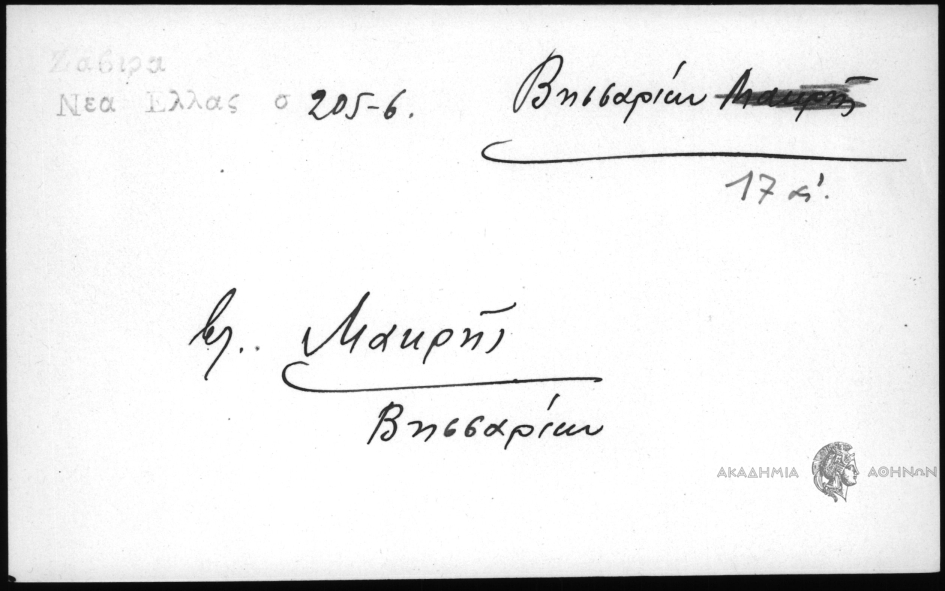 Ζαβιρα
Νεα Ελλας σ 205-6.
Βησσαρίων Μακρῆς
17 αἰ.
βλ. Μακρῆς
Βησσαρίων
ΑΚΑΔΗΜΙΑ ΑΘΗΝΩΝ